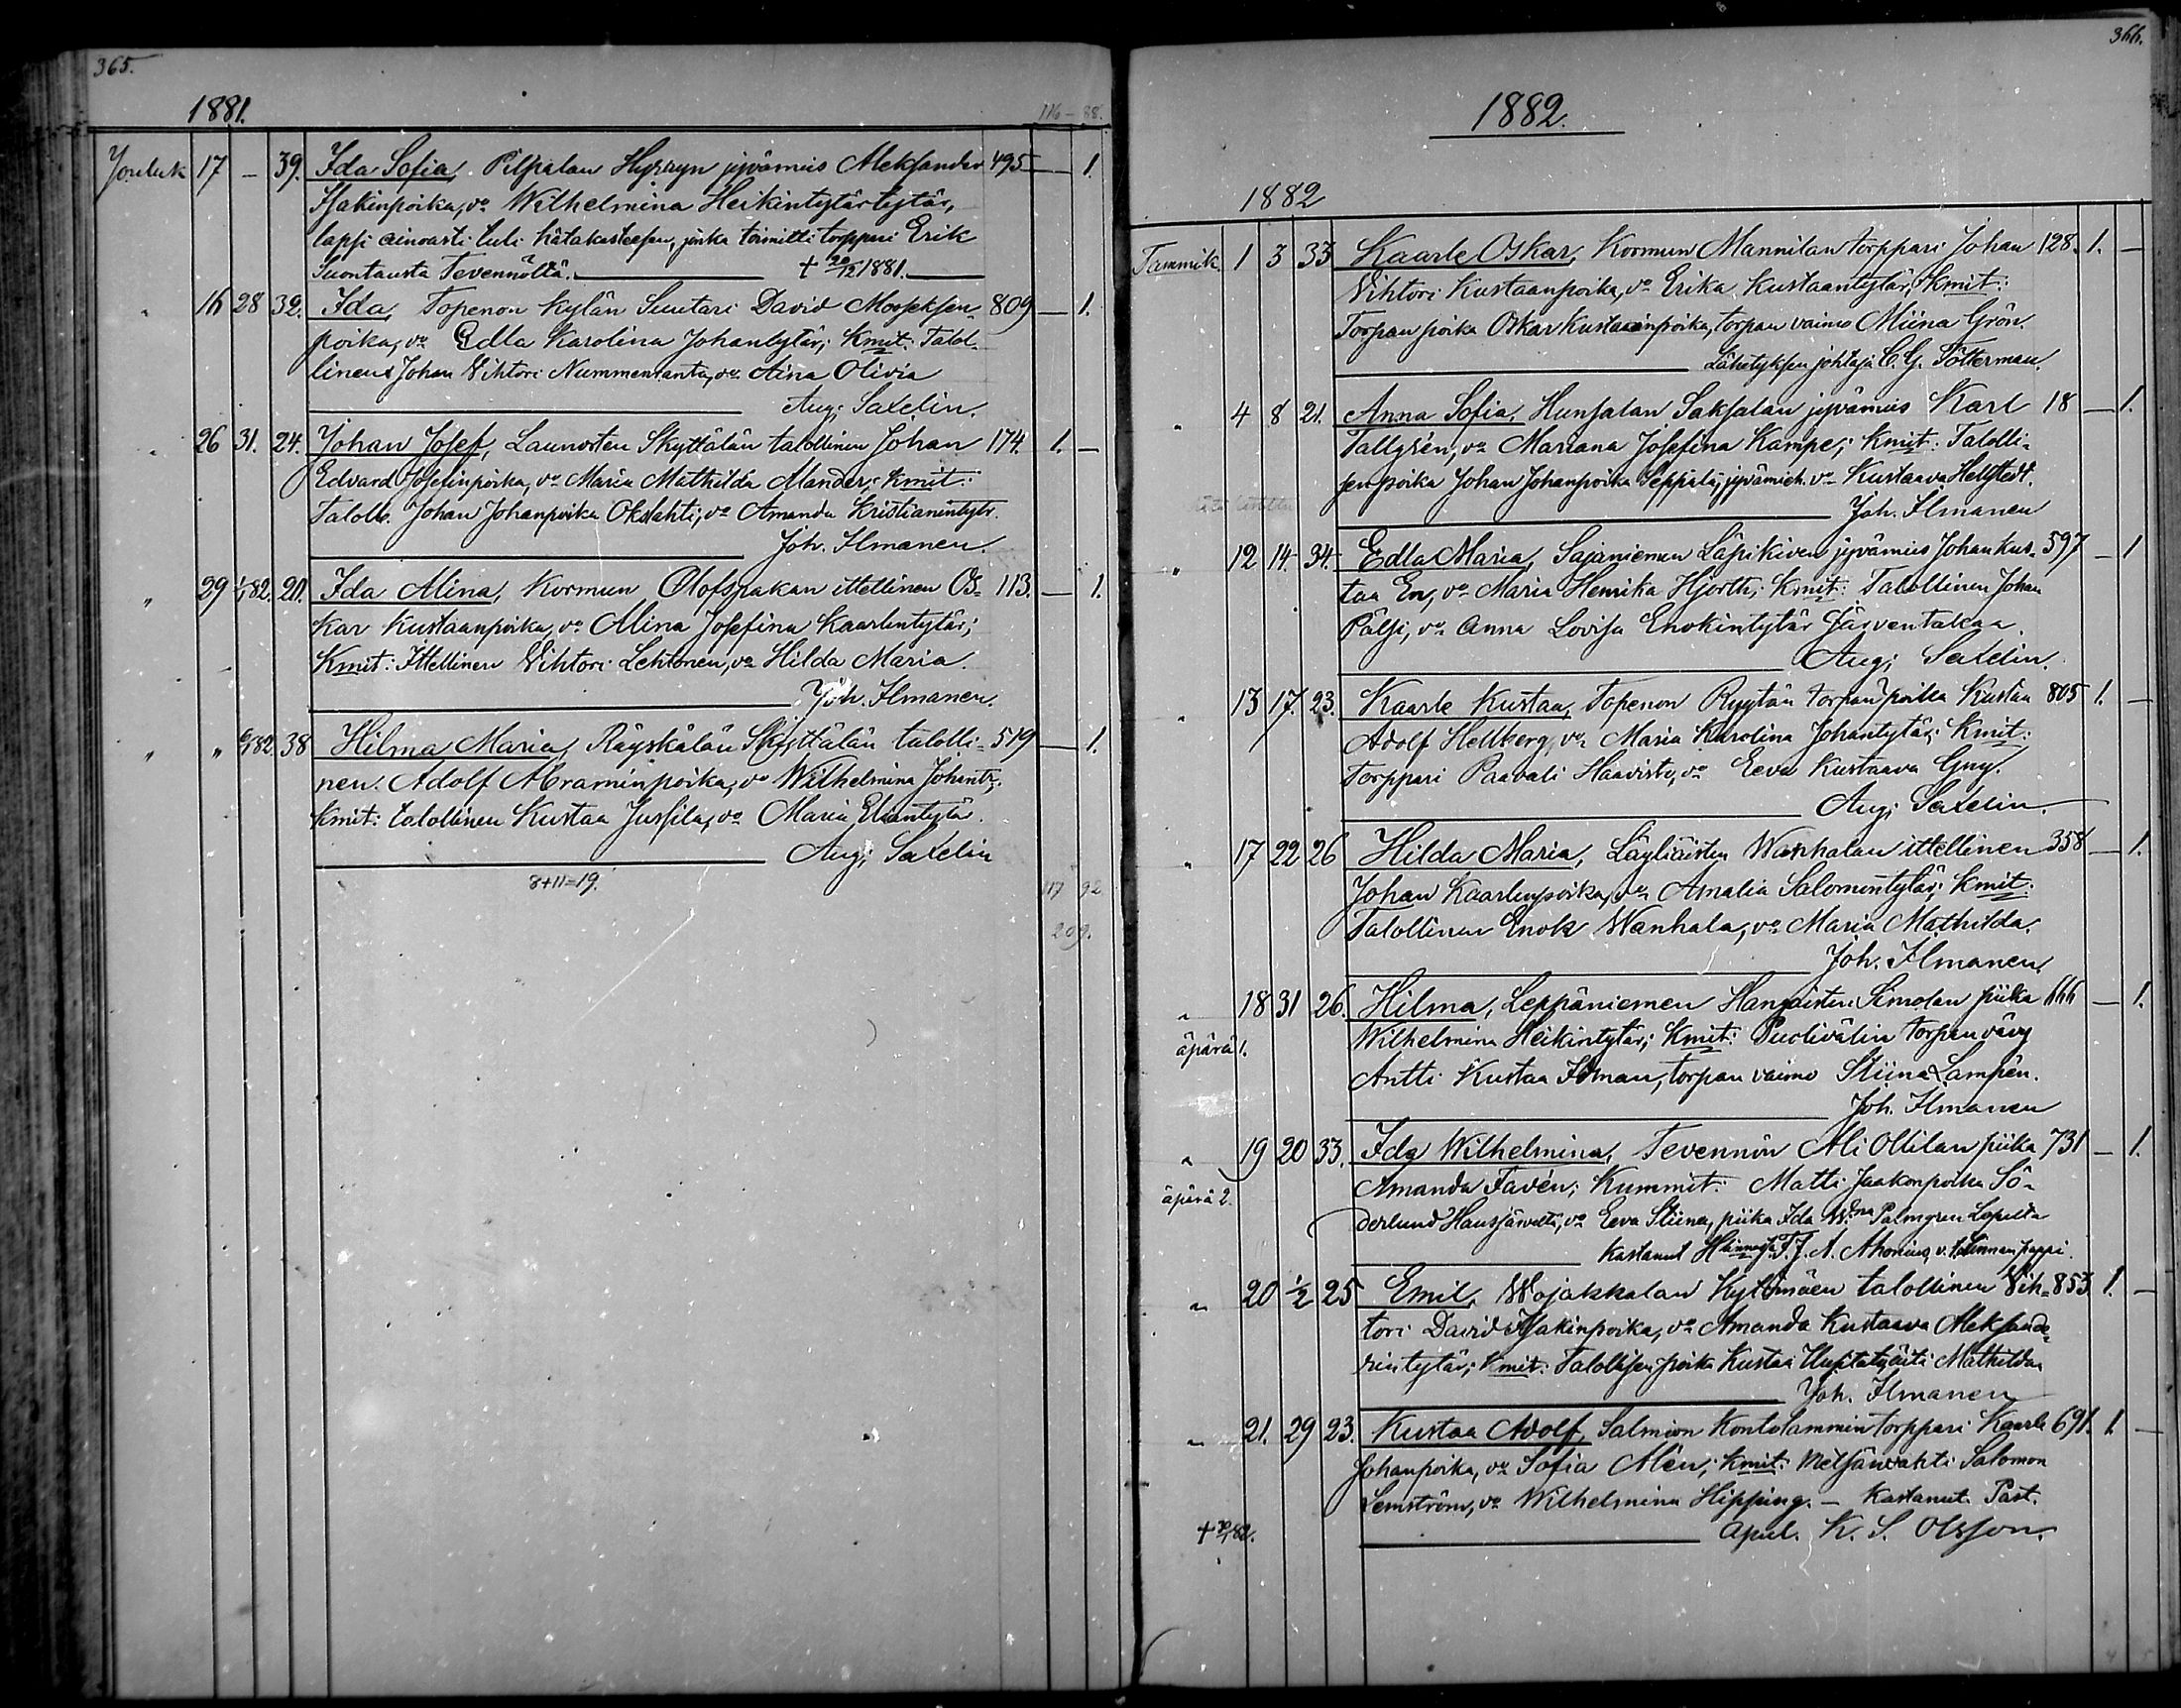 365.
1881.
116 - 88.
Jouluk 17 - 39. Ida Sofia, Pilpalan Hyrsyn jyvämies Aleksander 495 - 1.
Isakinpoika, vo Wilhelmina Heikintytärtytär,
lapsi ainoasti tuli hätäkasteesen, jonka toimitti torppari Erik
Suontausta Tevennöltä. + 20/12 1881.
" 16 28 32. Ida, Topenon kylän Suutari David Mooseksen- 809 - 1.
poika, vo Edla Karolina Johantytär; Kmit: Talol-
linen Johan Vihtori Nummenranta, vo Aina Olivia
Aug; Saxelin.
" 26 31. 24. Johan Josef, Launosten Skyttälän talollinen Johan 174. 1. -
Edvard Josefinpoika, vo Maria Mathilda Mander; Kmit:
Taloll. Johan Johanpoika Okslahti, vo Amanda Kristianintytr.
Joh. Ilmanen.
" 29 1/1 82. 20. Ida Alina, Kormun Olofspakan ittellinen Os- 113. - 1.
kar Kustaanpoika, vo Alina Josefina Kaarlentytär;
Kmit: Ittellinen Vihtori Lehtonen, vo Hilda Maria.
Joh. Ilmanen.
" " 6/1 82. 38 Hilma Maria, Räyskälän Skyttälän talolli- 519 - 1.
nen Adolf Abraminpoika, vo Wilhelmina Johantr.
Kmit: talollinen Kustaa Jussila, vo Maria Eliantytär.
Aug; Saxelin
8+11=19.
117 92
209.
366.
1882.
1882
Tammik. 1 3 33 Kaarle Oskar, Kormun Mannilan torppari Johan 128. 1. -
Vihtori Kustaanpoika, vo Erika Kustaantytär; Kmit:
Torpan poika Oskar Kustaanpoika, torpan vaimo Miina Grön.
Lähetyksen johtaja C. G. Tötterman.
" 4 8 21. Anna Sofia, Hunsalan Saksalan jyvämies Karl 18 - 1.
Tallgrén, vo Mariana Josefina Kampe; Kmit: Talolli-
senpoika Johan Johanpoika Seppälä, jyvämieh. vo Kustaava Hellstedt.
Joh. Ilmanen
" 12 14. 34. Edla Maria, Sajaniemen Läpikiven jyvämies Johan Kus- 597 - 1
taa En, vo Maria Henrika Hjorth; Kmit: Talollinen Johan
Pälsi, vo Anna Lovisa Enokintytär Järventakaa.
Aug; Saxelin.
" 13 17. 23. Kaarle Kustaa, Topenon Ryytän torpanpoika Kustaa 805 1. -
Adolf Hellberg, vo Maria Karolina Johantytär; Kmit:
Torppari Paavali Haavisto, vo Eeva Kustaava Gny.
Aug; Saxelin
" 17 22 26 Hilda Maria, Läyliäisten Wanhalan ittellinen 358 - 1.
Johan Kaarlenpoika, vo Amalia Salomontytär; Kmit:
Talollinen Enok Wanhala, vo Maria Mathilda.
Joh. Ilmanen,
" 18 31 26. Hilma, Leppäniemen Hangaisten Simolan piika 666 - 1.
äpärä 1.
Wilhelmina Heikintytär; Kmit: Puolivälin torpan vävy
Antti Kustaa Idman, torpan vaimo Stiina Lampén.
Joh. Ilmanen
" 19 20 33. Ida Wilhelmina, Tevennön Ali Ollilan piika 731 - 1.
äpärä 2.
Amanda Favén; Kummit: Matti Jaakonpoika Sö-
derlund Hausjärveltä, vo Eeva Stiina, piika Ida W:ina Palmgren Lopelta
Kastanut H:linnassa F. J. A. Ahonius, v. t. Linnan pappi.
" 20 1/2 25 Emil, Wojakkalan Kyttömäen talollinen Vih- 853. 1. -
tori David Isakinpoika, vo Amanda Kustaava Aleksande-
rintytär; Kmit: Talollisen poika Kustaa Mathilda
Joh. Ilmanen
" 21. 29 23. Kustaa Adolf, Salmion Kontolammin torppari Kaarle 691. 1. -
Johanpoika, vo Sofia Alén; Kmit: Metsänvahti Salomon
Lemström, vo Wilhelmina Hipping. - Kastanut Past.
apul. K. S. Olsson.